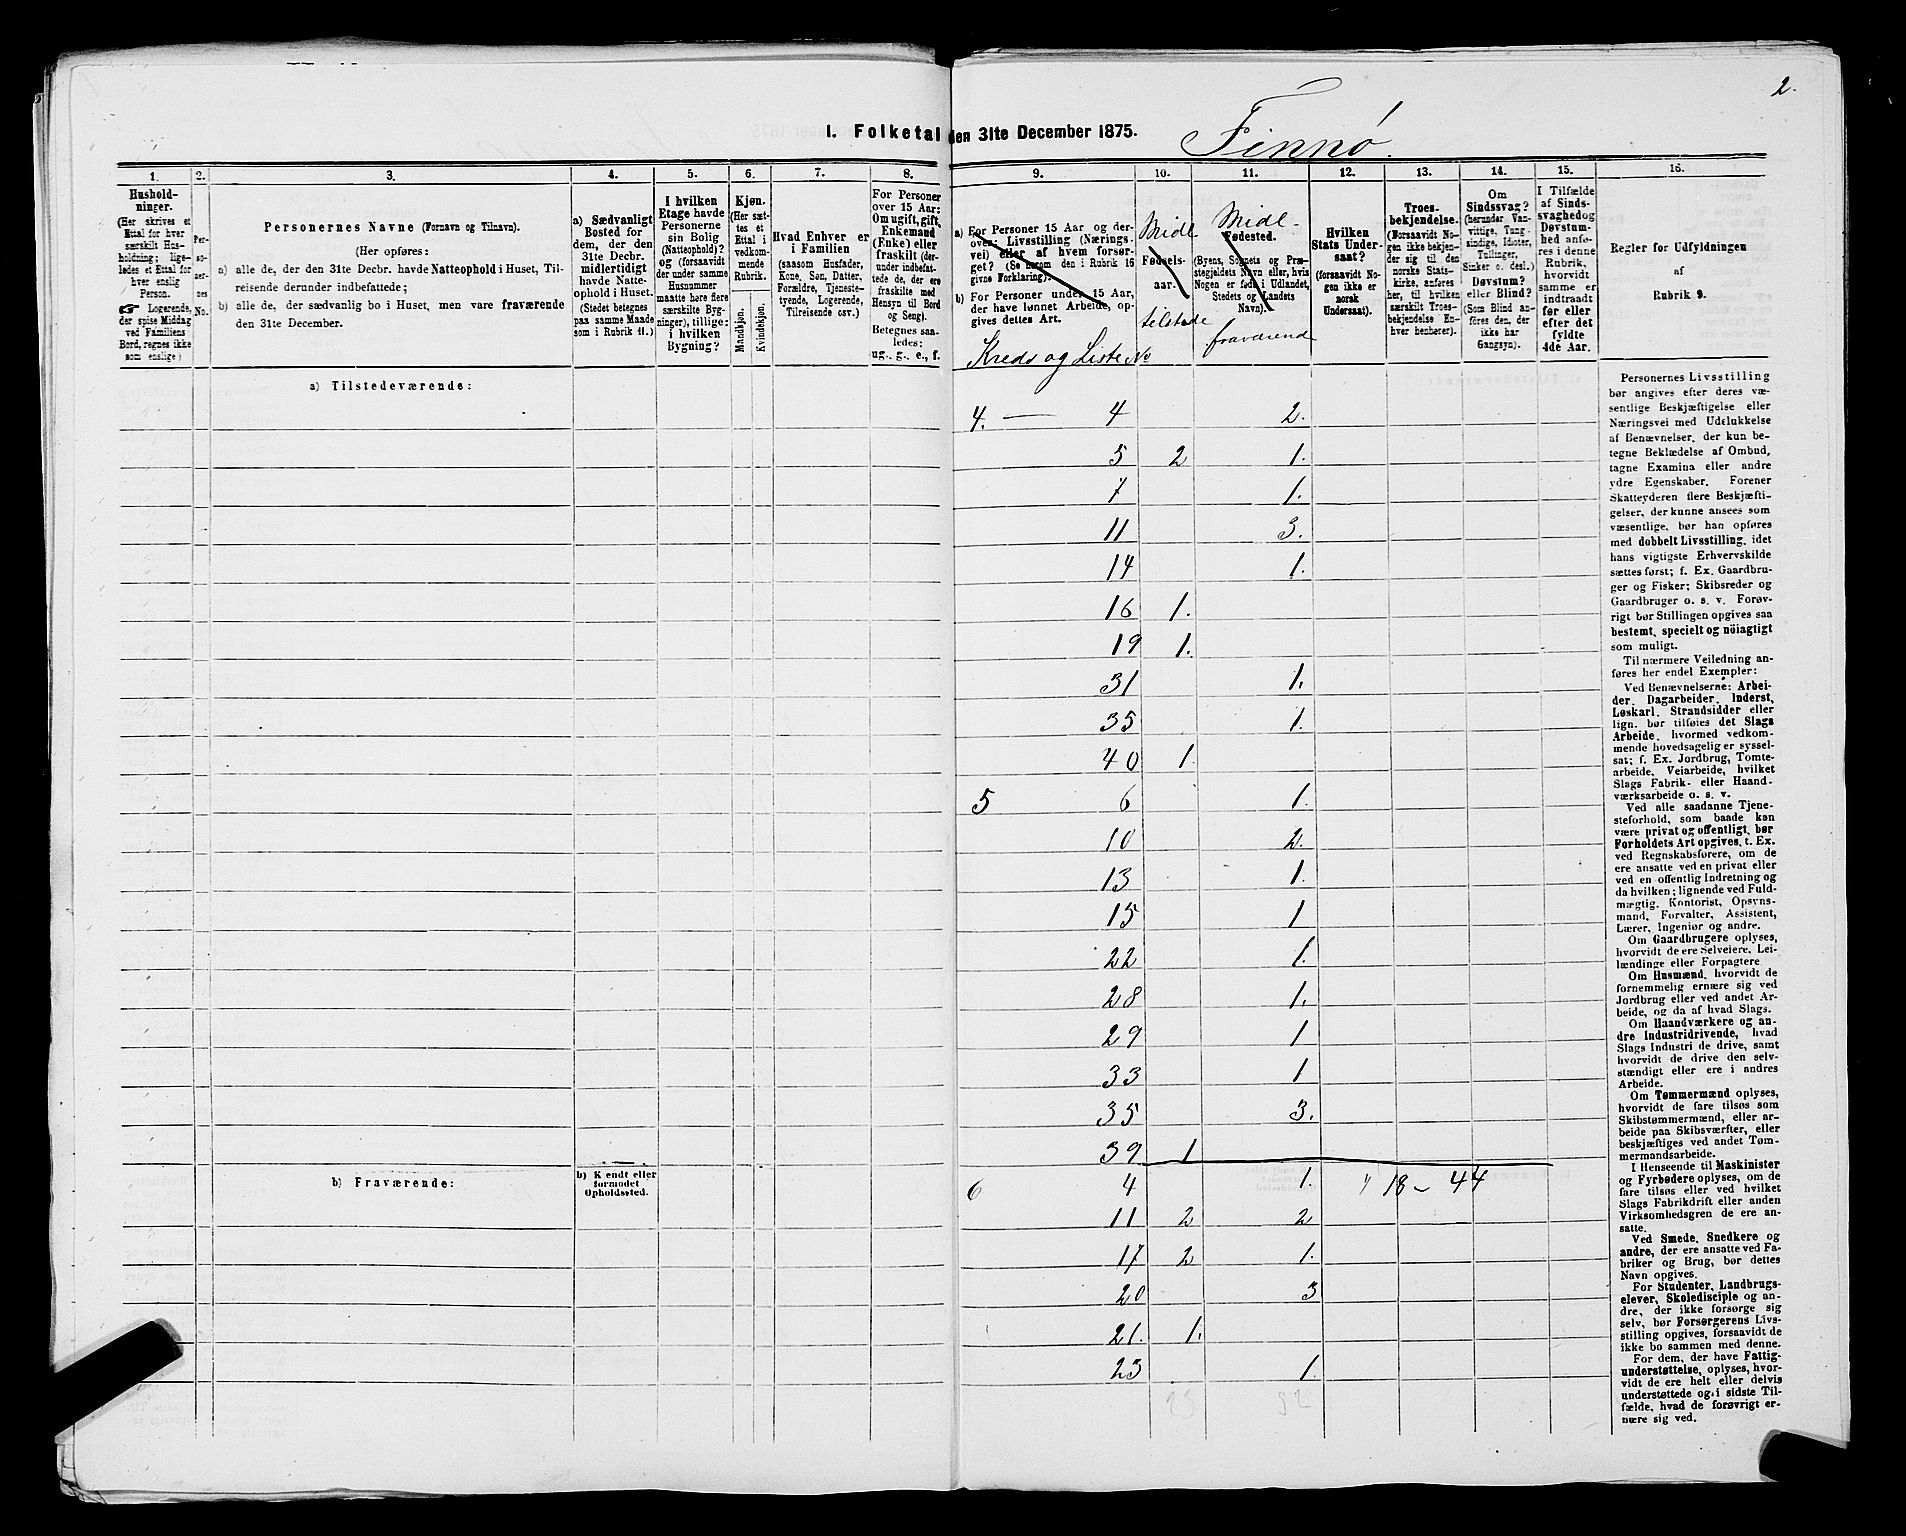 2.
I. Folketal den 31te December 1875.
Finnø.
1.
Hushold-
ninger.
(Her skrives et
Ettal for hver
særskilt Hus-
holdning; lige-
ledes et Ettal for
hver enslig
Person.
☞ Logerende,
der spise Middag
ved Familiens
Bord, regnes ikke
som enslige)
2.
Per-
so-
ner-
nes
No.
3.
Personernes Navne (Fornavn og Tilnavn).
(Her opføres:
a) alle de, der den 31te Decbr. havde Natteophold i Huset, Til-
reisende derunder indbefattede;
b) alle de, der sædvanlig bo i Huset, men vare fraværende
den 31te December.
4.
a) Sædvanligt
Bosted for
dem, der den
31te Decbr.
midlertidigt
havde Natte-
ophold i Huset.
(Stedet betegnes
paa samme Maade
som i Rubrik 11.)
5.
I hvilken
Etage havde
Personerne
sin Bolig
(Natteophold)?
og (forsaavidt
der under samme
Husnummer
maatte høre flere
særskilte Byg-
ninger), tillige:
i hvilken
Bygning?
6.
Kjøn.
(Her sæt-
tes et
Ettal i
vedkom-
mende
Rubrik.
Mandkjøn.
Kvindekjøn.
7.
Hvad Enhver er
i Familien
(saasom Husfader,
Kone, Søn, Datter,
Forældre, Tjeneste-
tyende, Logerende,
Tilreisende osv.)
8.
For Personer
over 15 Aar:
Om ugift, gift,
Enkemand
(Enke) eller
fraskilt (der-
under indbefat-
tede de, der ere
fraskilte med
Hensyn til Bord
og Seng).
Betegnes saa-
ledes:
ug., g., e., f.
9.
a) For Personer 15 Aar og der-
over: Livsstilling (Nærings-
vei) eller af hvem forsør-
get? (Se herom den i Rubrik 16
givne Forklaring).
b) For Personer under 15 Aar,
der have lønnet Arbeide, op-
gives dettes Art.
Kreds og Liste No
10.
Midl
Fødsels-
aar.
tilstede
11.
Midl-
Fødested.
(Byens, Sognets og Præ-
stegjeldets Navn eller, hvis
Nogen er født i Udlandet,
Stedets og Landets
Navn).
fraværende
12.
Hvilken
Stats Under-
saat?
(forsaavidt No-
gen ikke er
norsk
Undersaat).
13.
Troes-
bekjendelse.
(Forsaavidt No-
gen ikke bekjen-
der sig til den
norske Stats-
kirke, anføres
her, til hvilken
særskilt Troes-
bekjendelse En-
hver henhører).
14.
Om
Sindssvag?
(herunder Van-
vittige, Tung-
sindige, Idioter,
Tullinger,
Sinker o. desl.)
Døvstum?
eller Blind?
(Som Blind an-
føres den, der
ikke har
Gangsyn).
15.
I Tilfælde
af Sinds-
svaghed og
Døvstum-
hed anfø-
res i denne
Rubrik,
hvorvidt
samme er
indtraadt
før eller
efter det
fyldte
4de Aar.
16.
Regler for Udfyldningen
af
Rubrik 9.
a) Tilstedeværende:
4. — 4 2.
5 2 1.
7 1.
11 3.
14 1.
16 1.
19 1.
31 1.
35 1.
40 1.
5 6 1.
10 2.
13 1.
15 1
22 1.
28 1.
29 1
33 1
35 3.
39 1
b) Fraværende:
b) Kjendt eller
formodet
Opholdssted.
6 4 1. 18 - 44
11 2 2
17 2 1.
20 3
21. 1.
23 1.
Personernes Livsstilling
bør angives efter deres væ-
sentlige Beskjæftigelse eller
Næringsvei med Udelukkelse
af Benævnelser, der kun be-
tegne Beklædelse af Ombud,
tagne Examina eller andre
ydre Egenskaber. Forener
Skatteyderen flere Beskjæfti-
gelser, der kunne ansees som
væsentlige, bør han opføres
med dobbelt Livsstilling, idet
hans vigtigste Erhvervskilde
sættes først; f. Ex. Gaardbru-
ger og Fisker; Skibsreder og
Gaardbruger o. s. v. Forøv-
rigt bør Stillingen opgives saa
bestemt, specielt og nöiagtigt
som muligt.
Til nærmere Veiledning an-
føres her endel Exempler:
Ved Benævnelserne: Arbei-
der, Dagarbeider, Inderst,
Løskarl, Strandsidder eller
lign. bør tilføies det Slags
Arbeide, hvormed vedkom-
mende hovedsagelig er syssel-
sat; f. Ex. Jordbrug, Tomte-
arbeide, Veiarbeide, hvilket
Slags Fabrik- eller Haand-
værksarbeide o. s. v.
Ved alle saadanne Tjene-
steforhold, som baade kan
være privat og offentligt, bør
Forholdets Art opgives, t. Ex.
ved Regnskabsførere, om de
ere ansatte ved en privat eller
ved en offentlig Indretning og
da hvilken; lignende ved Fuld-
mægtig, Kontorist, Opsyns-
mand, Forvalter, Assistent,
Lærer, Ingeniør og andre.
Om Gaardbrugere oplyses,
hvorvidt de ere Selveiere, Lei-
lændinge eller Forpagtere.
Om Husmænd, hvorvidt de
fornemmelig ernære sig ved
Jordbrug eller ved andet Ar-
beide, og da af hvad Slags.
Om Haandværkere og an-
dre Industridrivende, hvad
Slags Industri de drive, samt
hvorvidt de drive den selv-
stændigt eller ere i andres
Arbeide.
Om Tømmermænd oplyses,
hvorvidt de fare tilsøs som
Skibstømmermænd, eller ar-
beide paa Skibsværfter, eller
beskjæftiges ved andet Tøm-
mermandsarbeide.
I Henseende til Maskinister
og Fyrbødere oplyses, om de
fare tilsøs eller ved hvilket
Slags Fabrikdrift eller anden
Virksomhedsgren de ere an-
satte.
Ved Smede, Snedkere og
andre, der ere ansatte ved Fa-
briker og Brug, bør dettes
Navn opgives.
For Studenter, Landbrugs-
elever, Skoledisciple og an-
dre, der ikke forsørge sig
selv, bør Forsørgerens Livs-
stilling opgives, forsaavidt de
ikke bo sammen med denne.
For dem, der have Fattig-
understøttelse, oplyses, hvor-
vidt de ere helt eller delvis
understøttede og i sidste Til-
fælde, hvad de forøvrigt er-
nære sig ved.